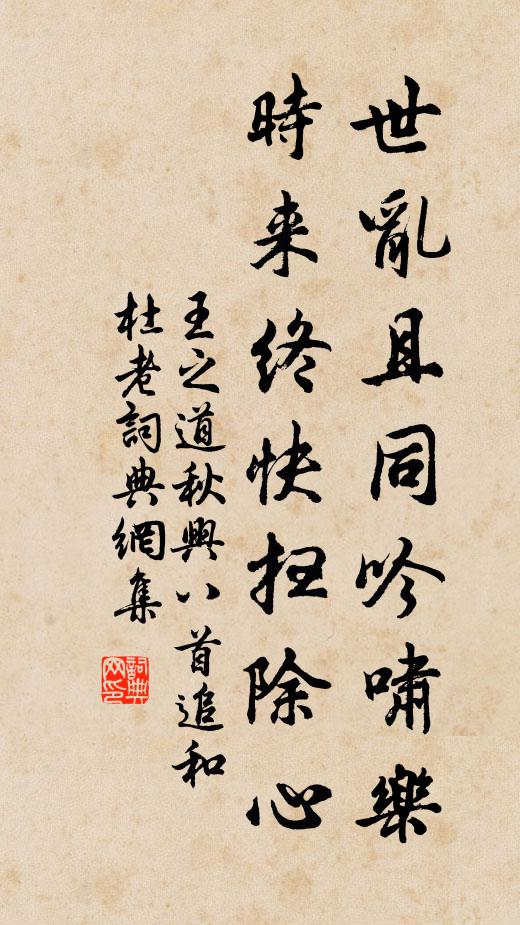 世亂且同吟嘯樂
時来終快扫除心
王之道秋興八首追和
杜老詞典網集
詞典
网印